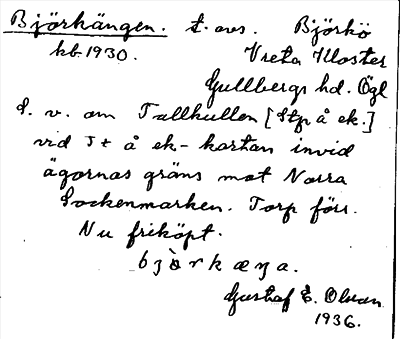 Björhängen. t. avs. Björkö
kb. 1930. Vreta Kloster
Gullbergs hd. Ögl
S. v. om Tallkullen [Stp å ek.]
vid Tt å ek-kartan invid
ägornas gräns mot Norra
Sockenmarken. Torp förr.
Nu friköpt.
Gustaf E. Olson
1936.